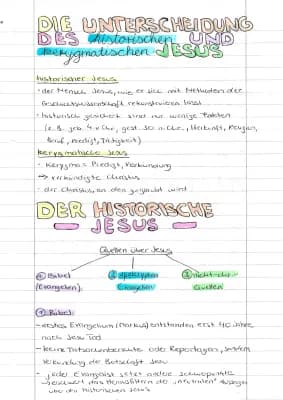 DIE UNTERSCHEIDUNG
DES historischen UND
kerygmatischen JESUS
historischer Jesus
· der Mensch Jesus, wie er sich mit Methoden der
Geschichtswissenschaft rekonstruieren lässt
· historisch gesichert sind nur wenige Fakten
(z.B. geb. 4 v. Chr., gest. 30 n. Chr., Herkunft, Religion,
Beruf, Predigt, Tätigkeit)
kerygmatische Jesus
· Kerygma = Predigt, Verkündung
→ verkündigte Christus
· der Christus, an den geglaubt wird
DER HISTORISCHE
- JESUS -
Quellen über Jesus
① Bibel
(Evangelien)
② apokryphen
Evangelien
③ nicht-chr.
Quellen
① Bibel:
- erstes Evangelium (Markus) entstanden erst 40 Jahre
nach Jesu Tod
- keine Tatsachenberichte oder Reportagen, sondern
Verkündung der Botschaft Jesu
- jeder Evangelist setzt andere Schwerpunkte
→ erschwert das Herausfiltern der "neutralen" Aussagen
über den historischen Jesus